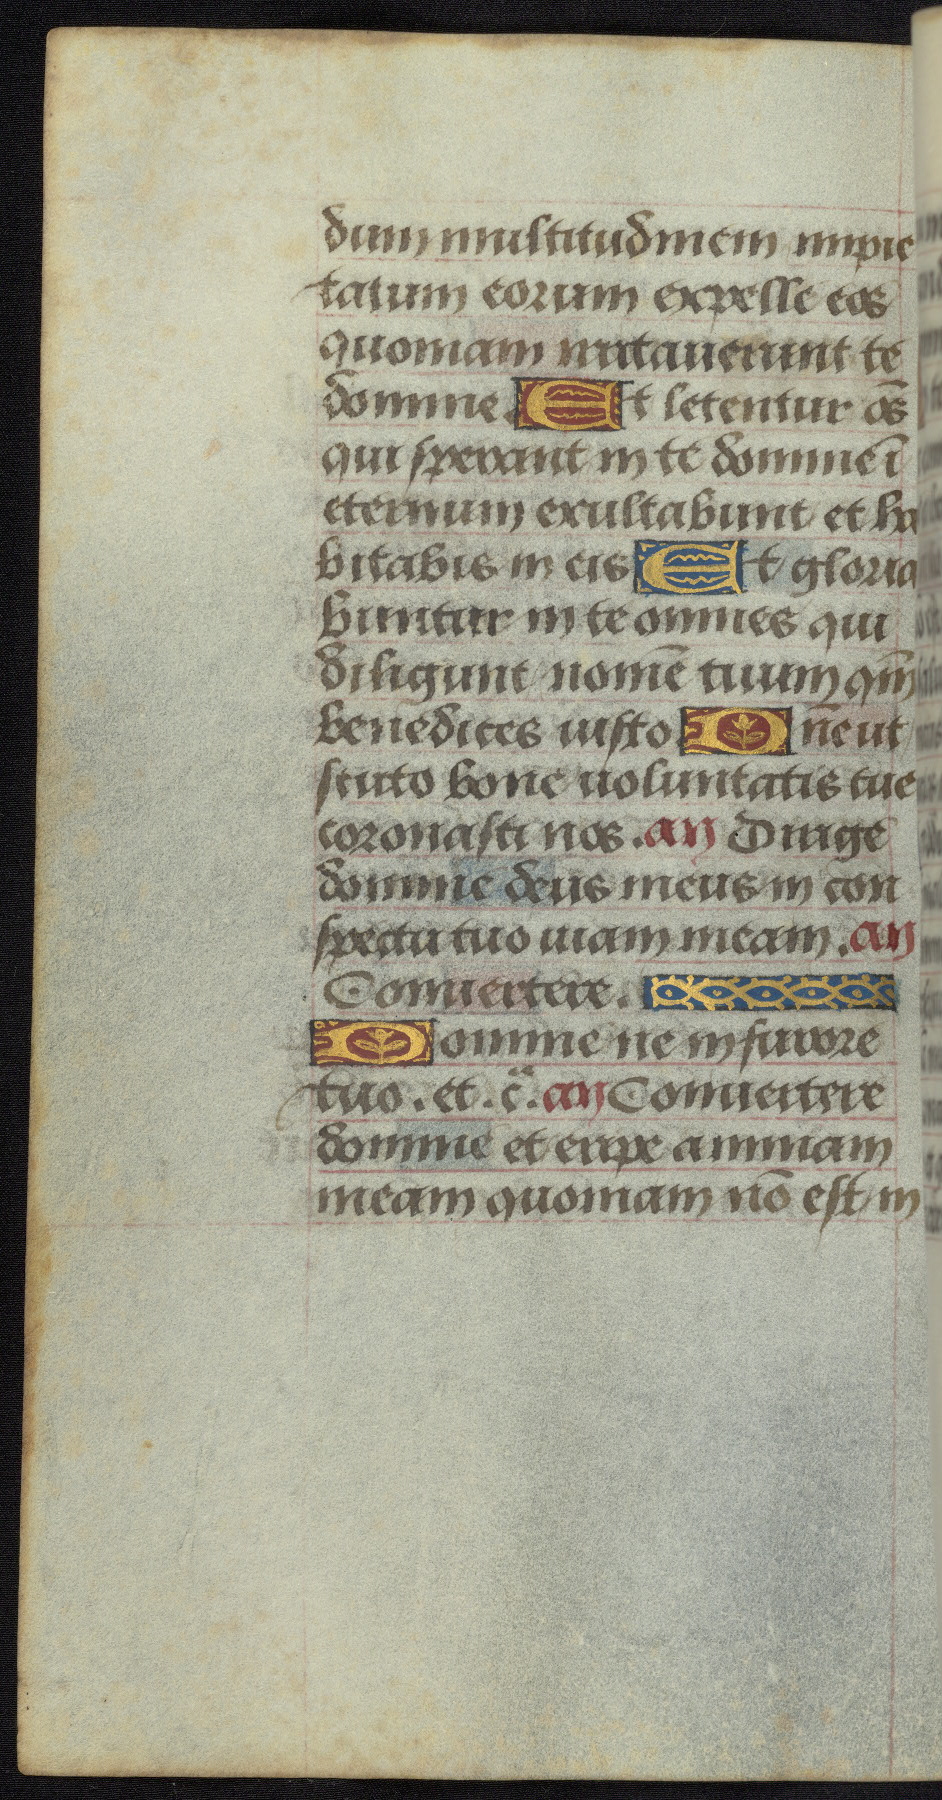 dum multitudinem impie
tatum eorum expelle eos
quoniam irritauerunt te
domine. Et letentur oēs
qui sperant in te domine ī
eternum exultabunt et ha
bitabis in eis Et gloria
buntur in te omnes qui
diligunt nomē tuum qm̄
benedices iusto Dn̄e ut
scuto bone uoluntatis tue
coronasti nos. an Dirige
domine deus meus in con
spectu tuo uiam meam. an
Conuertere.
Domine ne in furore
tuo. et. c̄. an Conuertere
domine et eripe animam
meam quoniam nō est in